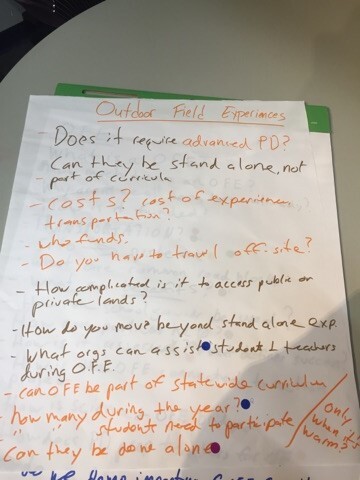 Outdoor Field Experiences
- Does it require advanced PD?
Can they be stand alone, not
- part of curricula
- costs? cost of experience,
transportation?
- who funds.
- Do you have to travel off site?
- How complicated is it to access public or
private lands?
- How do you move beyond stand alone exp.
- What orgs can assist students & teachers
during O.F.E.
- can OFE be part of statewide curriculum
- how many during the year?
- " " students need to participate
Only when it's warm?
Can they be done alone